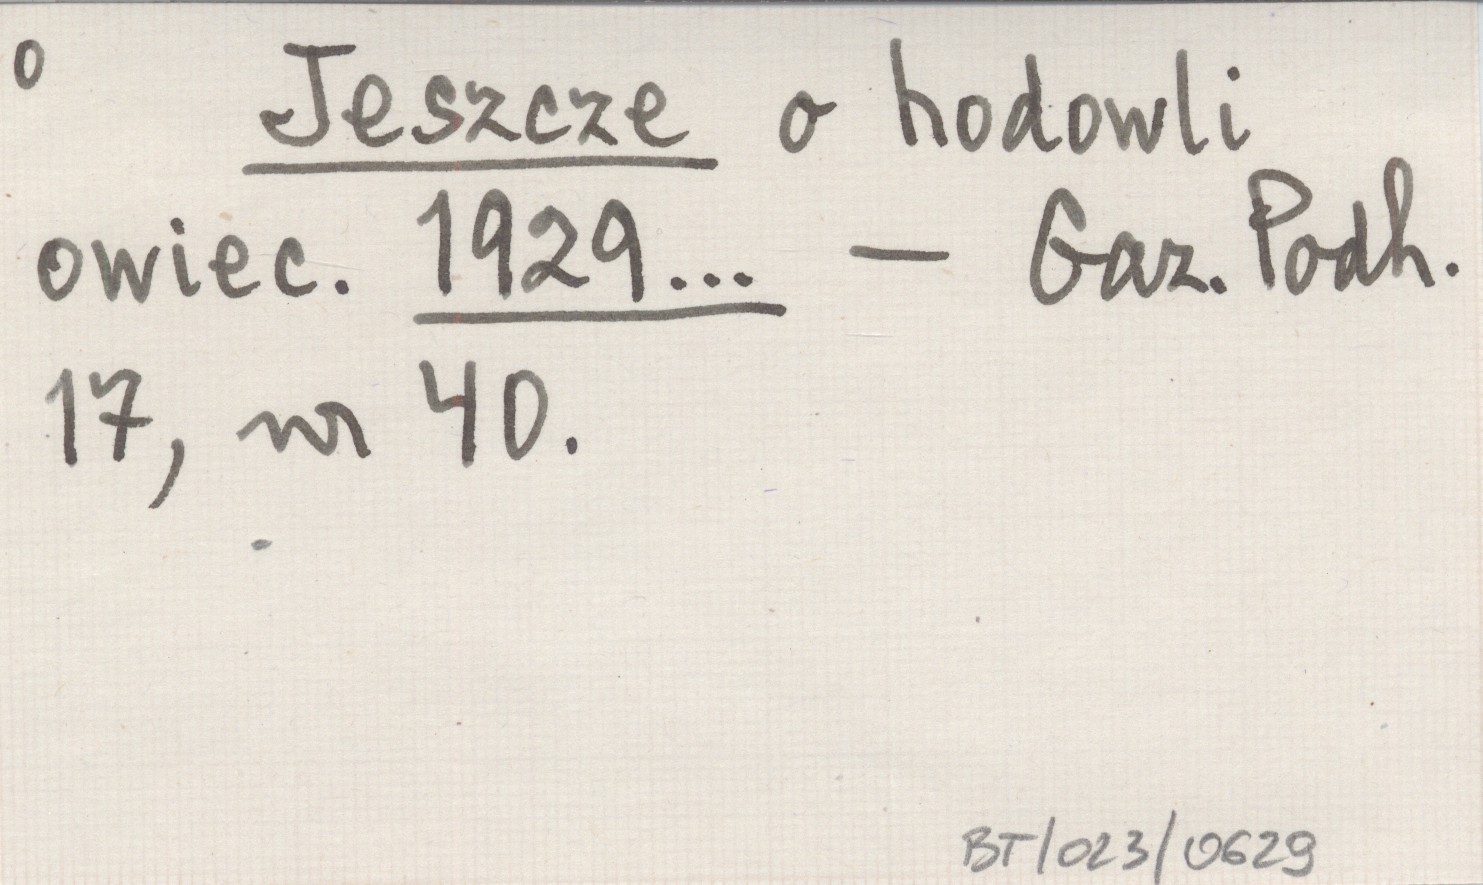 o
Jeszcze o hodowli
owiec. 1929... — Gaz. Podh.
17, nr 40.
BT/023/0629